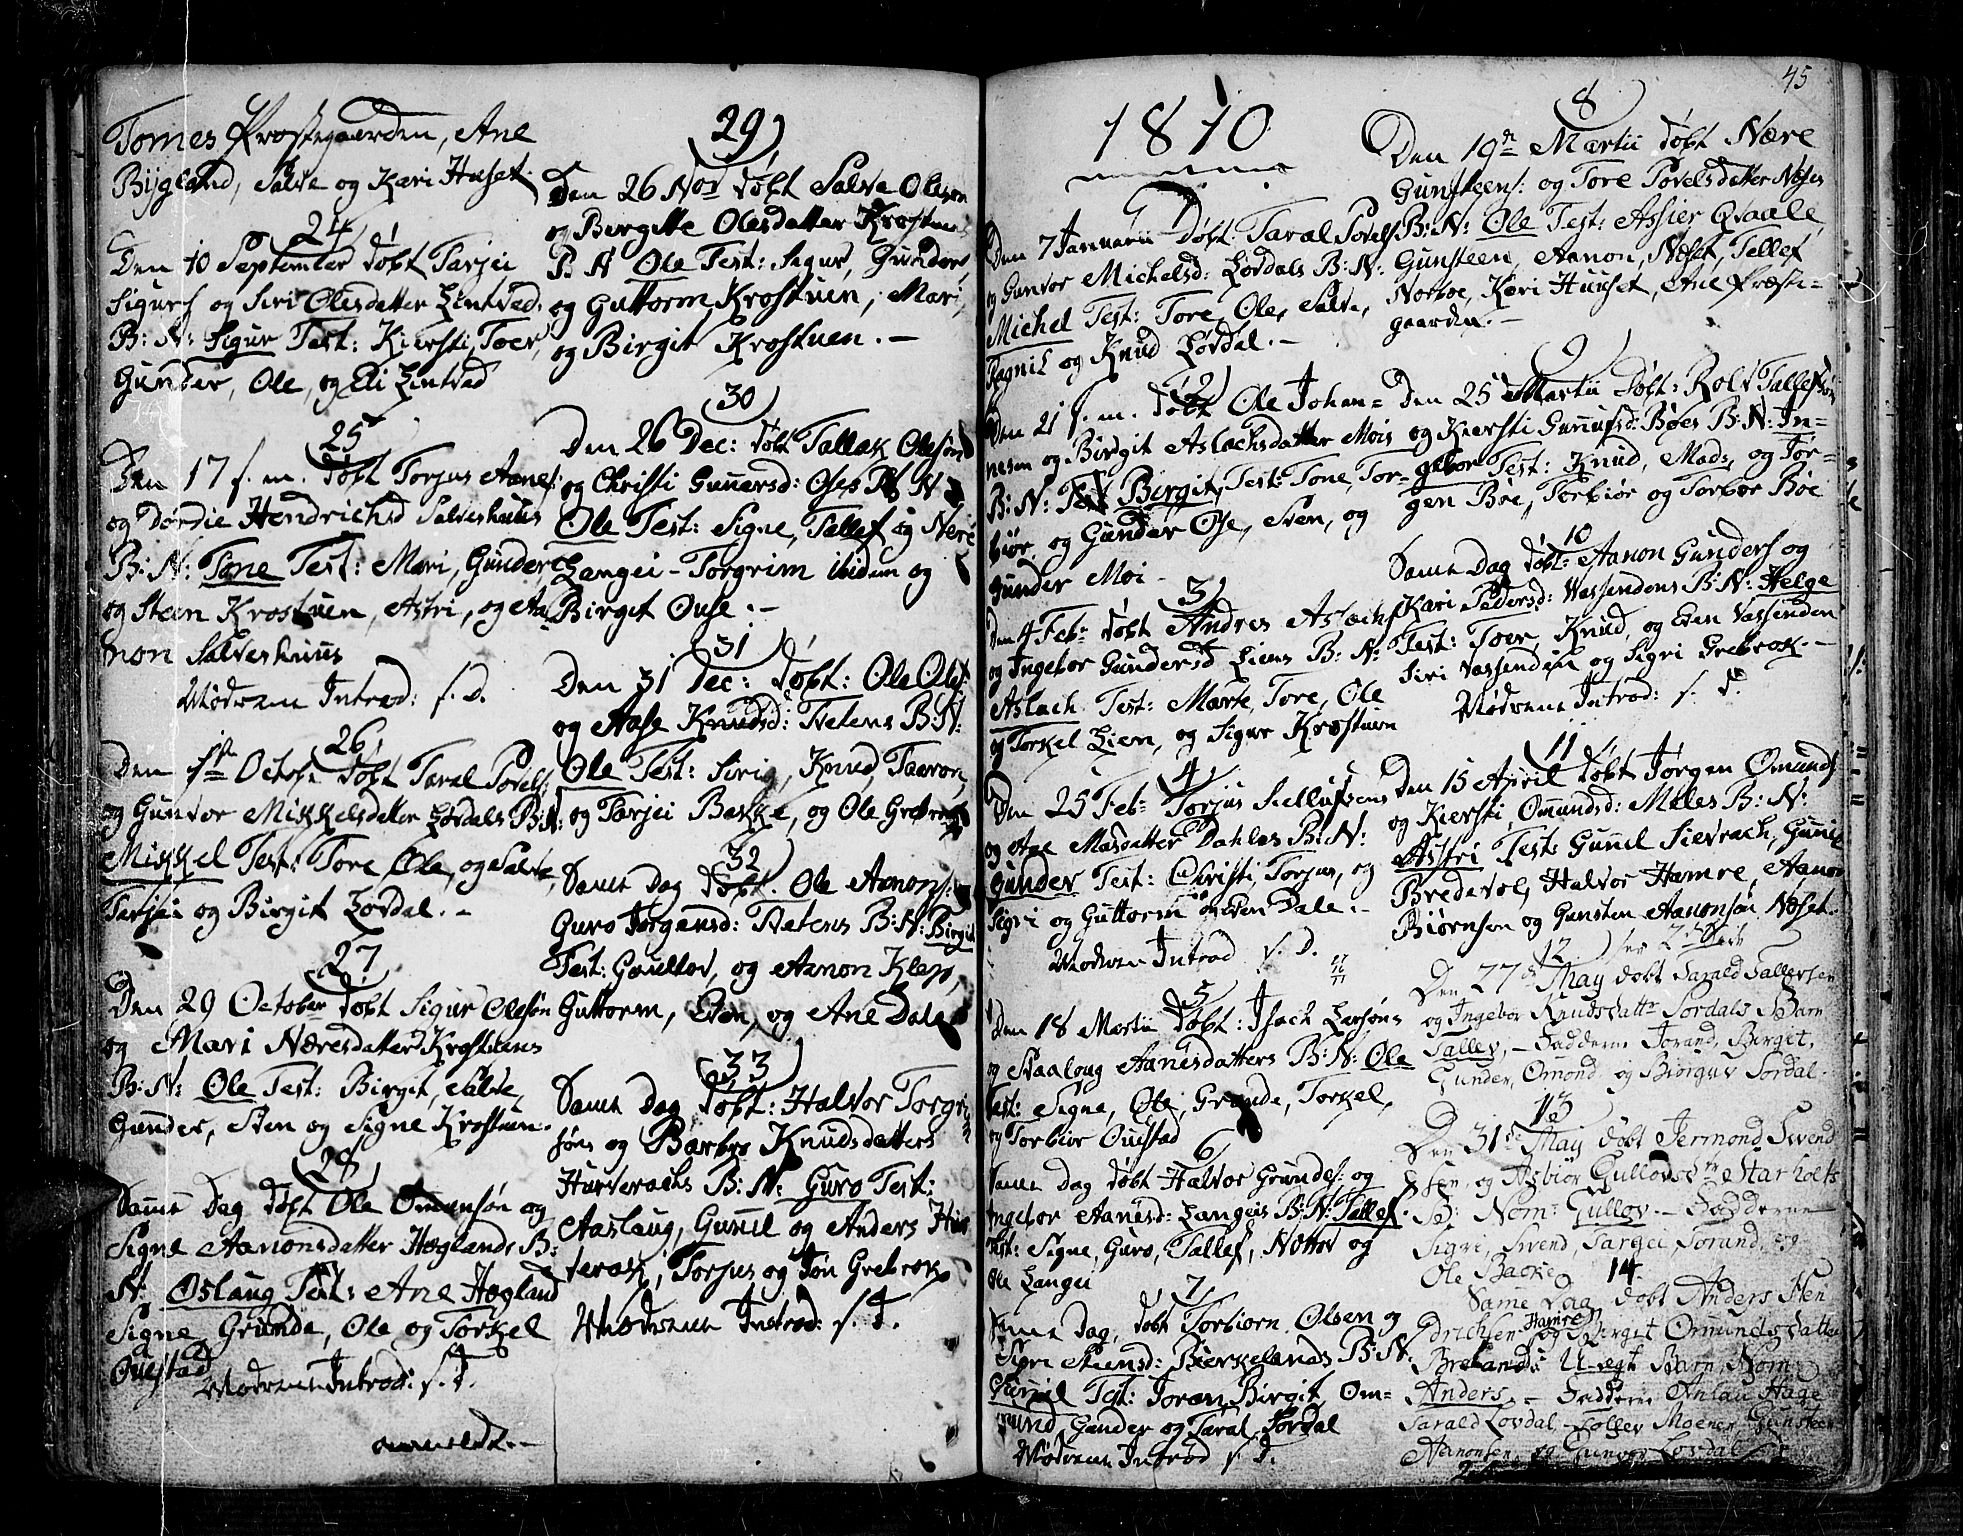 Tomes Præstegaarden, Ane
Bÿgland, Salve og Kari Huset.
24
Den 10 September døbt Tarjei
Sigurs og Siri Olesdatter Lintved
B: N: Sigur Test: Kiersti, Toer,
Gunder, Ole, og Eli Lintved
25
Den 17 f. m. døbt Torjus Aanes
og Dordie Hendrichsd Salveshuus
B: N: Tone Test: Mari, Gunder
og Steen Krostuen, Astri, og Aa-
non Salveshuus
Mødrene Introd: f. d.
26
Den 1ste Octobr døbt Taral Povels:
og Gunvor Mikkelsdatter Lovdals B: N:
Mikkel Test: Tore Ole, og Salve,
Tarjei og Birgit Lovdal. -
27
Den 29 October døbt Sigur Olesøn
og Mari Næresdatter Krostuens
B: N: Ole Test: Birgit, Salve,
Gunder, Sten og Signe Krostuen.
28
Samme Dag døbt Ole Omensøn og
Signe Aanonsdatter Høglands B:
N: Oslaug Test: Ane Høgland
Signe, Grunde, Ole og Torkel
Ouestad
Mødrene Introd: f. d.
29
Den 26 Nov døbt Salve Olesøn
og Birgitte Olesdatter Krostuens
B. N Ole Test: Sigur, Gunder
og Guttorm Krostuen, Mari,
og Birgit Krostuen. -
30
Den 26 Dec: døbt Tallak Olesøn
og Christi Gunnarsd: Oses B N
Ole Test: Signe, Tallef og Nere
Langei - Torgrim ibidem og
Birgit Ouse. -
31
Den 31 Dec: døbt: Ole Oles:
og Aase Knudsd: Tvetens B: N:
Ole Test: Sirig, Knud, Taaron,
og Tarjei Bakke, og Ole Grebrok
32
Samme Dag døbt. Ole Aanons:
Guro Jorgensd: Tvetens B: N: Birgit
Test: Goullov, og Aanon Klep,
Guttorm, Even, og Ane Dale
33
Samme Dag døbt: Halvor Torgri
søns og Barbro Knudsdatters
Hurverachs B: N: Guro Test:
Aaslaug, Gunnil og Anders Hur
verak, Torjus og Jon Grebrok
Mødrene Introd: f. d.
45
1810
Den 7 Januarii døbt: Taral Povels
og Gunvor Michelsd: Lovdals B: N:
Michel Test: Tore, Ole, Salve,
Ragnil og Knud Lovdal. -
2
Den 21 f. m. døbt Ole Johan=
nesen og Birgit Aslachsdatter Mois
B: N: Birgit, Test: Tone, Tor-
biør, og Gunder Ose, Sven, og
Gunder Moi -
3
Den 4 Febr døbt Andres Aslachs
og Ingebor Gundersd Liens B: N:
Aslach Test: Marte, Tore, Ole
og Torkel Lien, og Sigur Krostuen
4
Den 25 Feb: Torjus Sellufsens
og Aae Masdatter Dahles B: N:
Gunder Test: Christi, Torjus, og
Sigri og Guttorm og Even Dale. -
Mødrene Introd f. d.
5
Den 18 Martii døbt: Isach Larsøns
og Staaloug Aanesdatters B: N: Ole
Test: Signe, Ole, Grunde, Torkel,
og Torbiør Ouestad
6
Samme Dag døbt Halvor Grundes: og
Ingebor Aanesd: Langeis B: N: Tallef.
Test: Signe, Guro, Tallef, Nottov og
Ole Langei
7
Samme Dag, døbt Torbiorn Olsen og
Sigri Stensd: Bierkelands B: N:
Gunnil Test: Joran, Birgit, Om=
mund Gunder og Taral Lordal
Mødrene Introd f. d.
8
Den 19de Martii døbt Nære
Gunsteens: og Tore Povelsdatter Nøses
B: N: Ole Test: Assier Qvaale,
Gunsteen, Aanon, Nøset, Tellef
Norboe, Kari Huuset, Ane Præste-
gaarden. -
9
Den 25 Martii døbt: Rolv Tallefsøn
og Kiersti Gunnufsd: Bøes B: N: In=
gebor Test: Knud, Mads, og Jør-
gen Bøe, Torbiør og Torbor Bøe
10
Samme Dag døbt: Aanon Gunders og
Kari Pedersd: Vassendens B: N: Helge
Test: Toer, Knud, og Even Vassenden
Siri Vassenden og Sigri Grebrok. -
Mødrene Introd: f. d.
11
Den 15 April døbt Jørgen Omunds
og Kiersti, Omundsd: Meles B: N:
Astri Test: Gunnil Sievrach, Gunnil
Bredevol, Halvor Hamre, Aanon
Biørnsøn og Gunsten Aanonsøn Nøset.
12
Den 27de May døbt Tarald Tallevsen
og Ingebor Knudsdattr Lordals Barn
Tallev, - Fadderne Jorand, Birget,
Gunder, Omond og Biørguv Lordal.
13
Den 31te May døbt Jermond Svend
sen, og Asbiør Gullovsdtr Starholts
B: Nom: Gullov. - Fadderne
Sigri, Svend, Targei, Jorand, og
Ole Backe
14
Samme Dag døbt Anders Hen
drichsen Hamre og Birget Omundsdatter
Brelands U-egt Barn Nom:
Anders. - Fadderne Anlau Hage
Tarald Lovdal, Tallev Moener, Gunsteen
Aanonsen, og Gunvor Lovdal